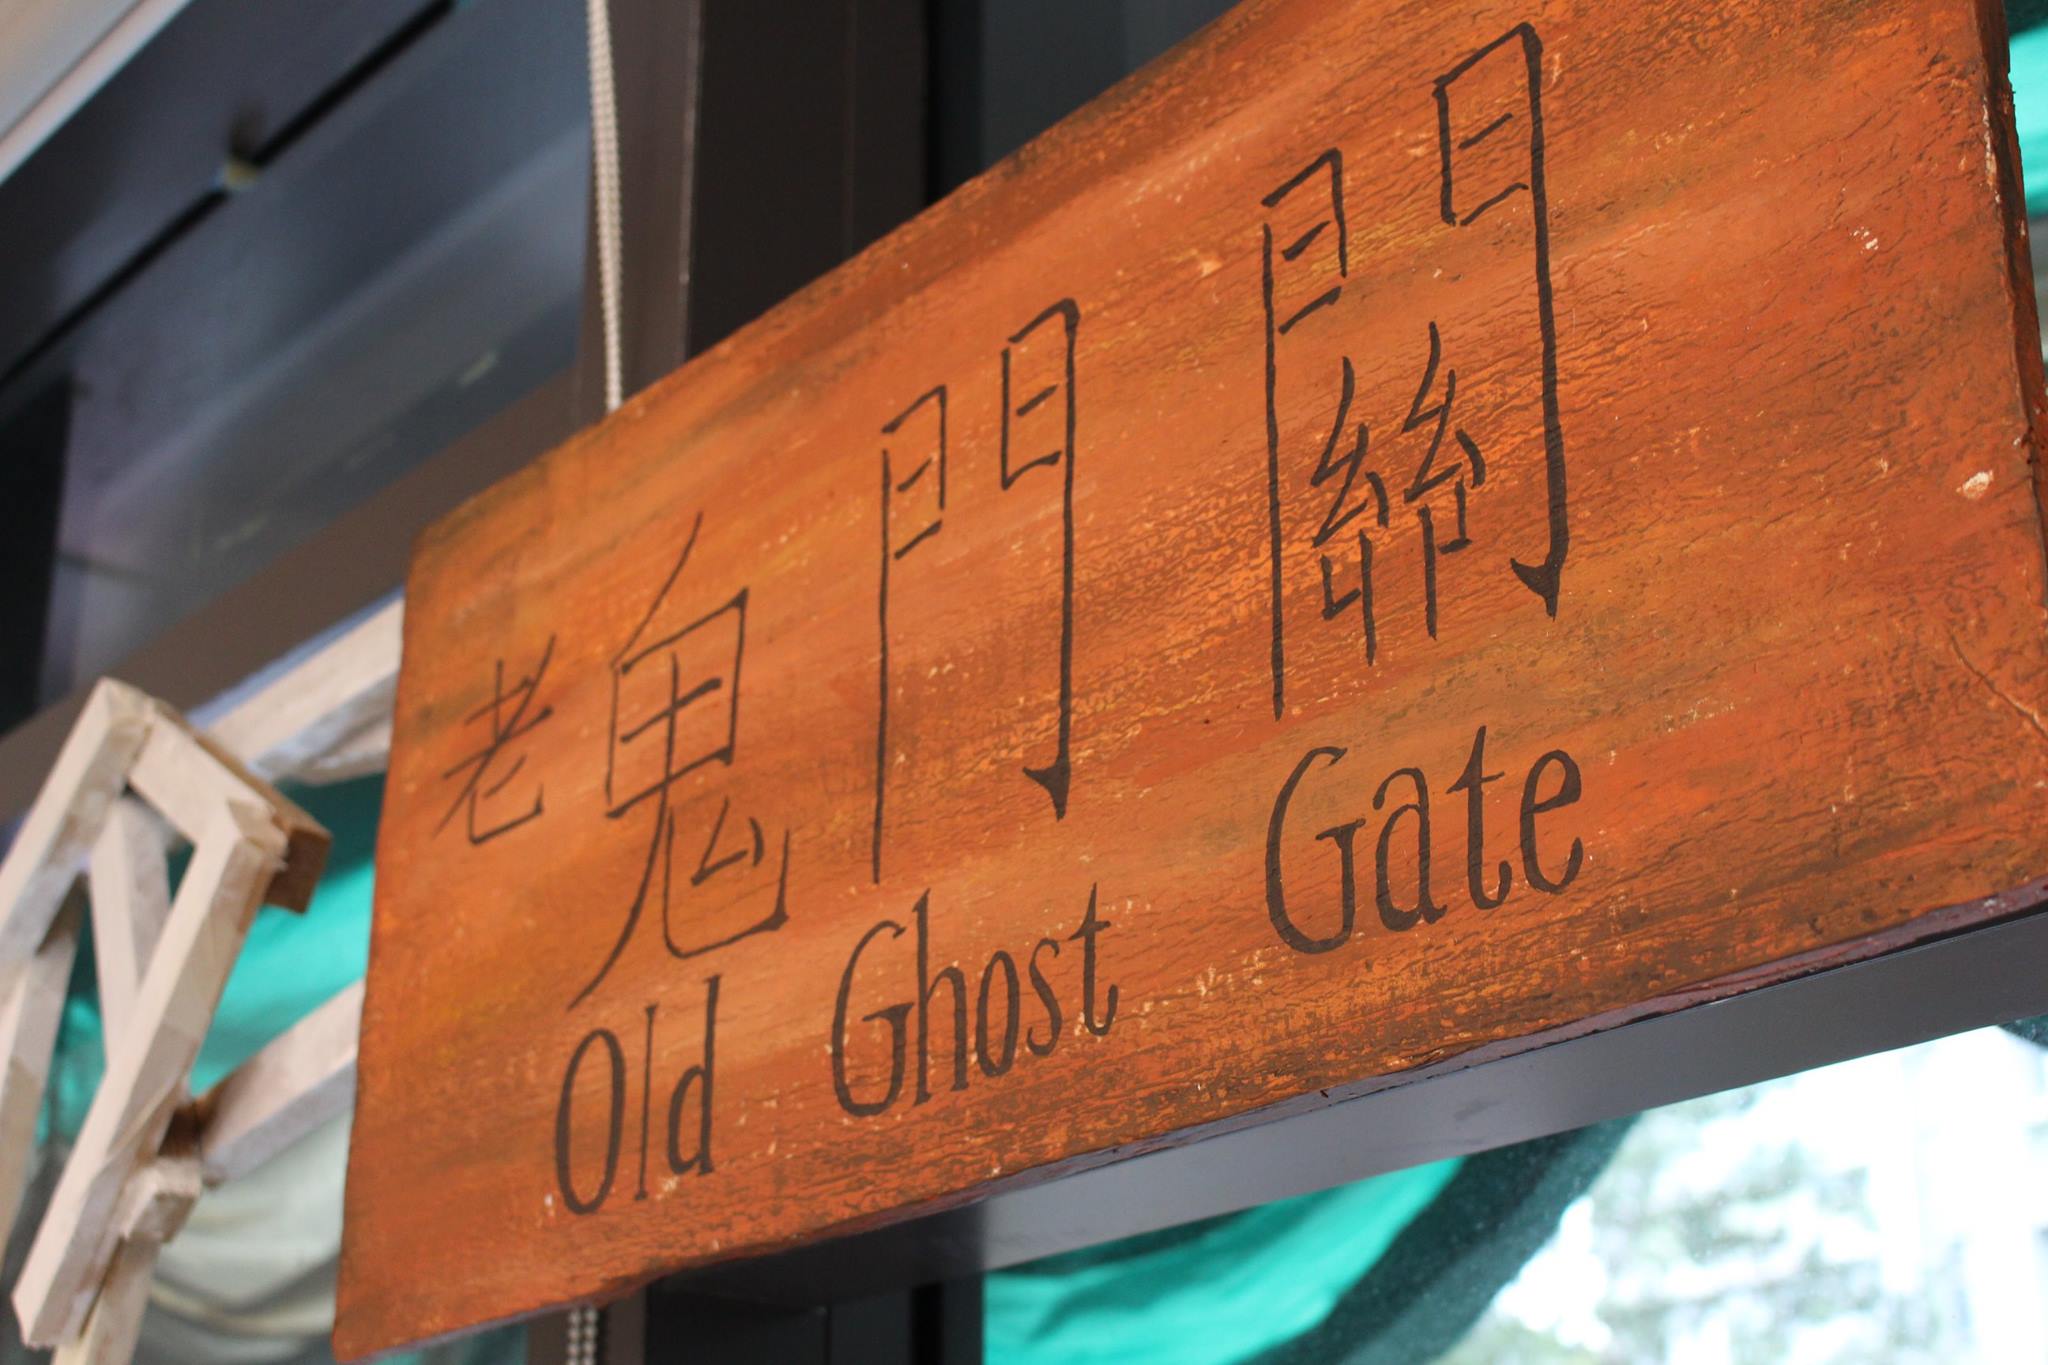 老鬼門關
Old Ghost Gate